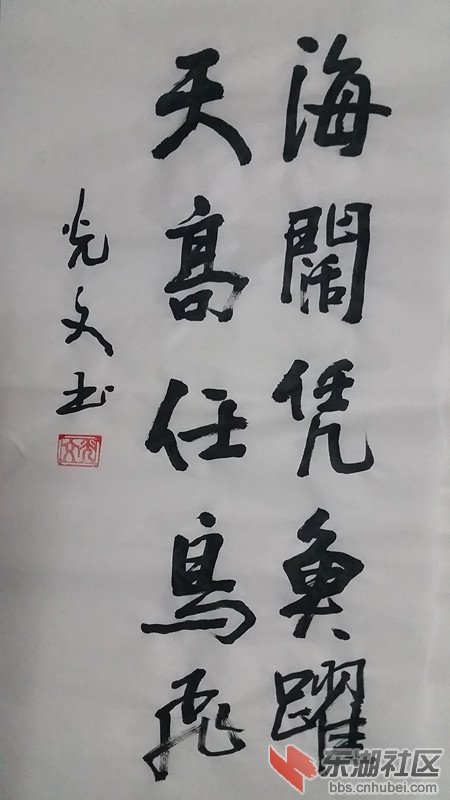 海闊凭魚躍
天高任鳥飛
光文书
东湖社区
bbs.cnhubei.com